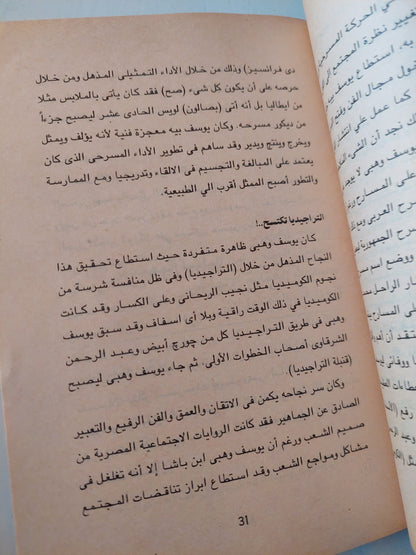 دى فرانسيز) وذلك من خلال الأداء التمثيلى المذهل ومن خلال
حرصه على أن يكون كل شىء (صح) فقد كان يأتى بالملابس مثلا
من ايطاليا بل أنه أتى (بصالون) لويس الحادى عشر ليصبح جزءاً
من ديكور مسرحه. وكان يوسف بيه معجزة فنية لأنه يؤلف ويمثل
ويخرج وينتج ويدير وقد ساهم فى تطوير الأداء المسرحى الذى كان
يعتمد على المبالغة والتجسيم فى الالقاء، وتدريجيا ومع الممارسة
والتطور أصبح الممثل أقرب الي الطبيعية.
التراجيديا تكتسح..!
كان يوسف وهبى ظاهرة متفردة حيث استطاع تحقيق هذا
النجاح المذهل من خلال (التراجيديا) وفى ظل منافسة شرسة من
نجوم الكوميديا مثل نجيب الريحانى وعلى الكسار وقد كانت
الكوميديا في ذلك الوقت راقية وبلا أى اسفاف وقد سبق يوسف
وهبى فى طريق التراجيديا كل من چورچ أبيض وعبد الرحمن
الشرقاوى أصحاب الخطوات الأولى. ثم جاء يوسف وهبى ليصبح
(قنبلة التراجيديا).
وكان سر نجاحه يكمن فى الاتقان والعمق والفن الرفيع والتعبير
الصادق عن الجماهير فقد كانت الروايات الاجتماعية المصرية من
صميم الشعب ورغم أن يوسف وهبى ابن باشا إلا أنه تغلغل فى
مشاكل ومواجع الشعب وقد استطاع ابراز تناقضات المجتمع
31
فى الحركة المسر
تغيير نظرة المجتمع ال
خول مجال الفن وفتح
كما عمل علي انت
لك نجد أن الشىء ال
وهبى لا يوجد
على المسارح و
سرح العربى و
سرح الجمهورية
ووضع اسم
ار الراحل
على المسرح